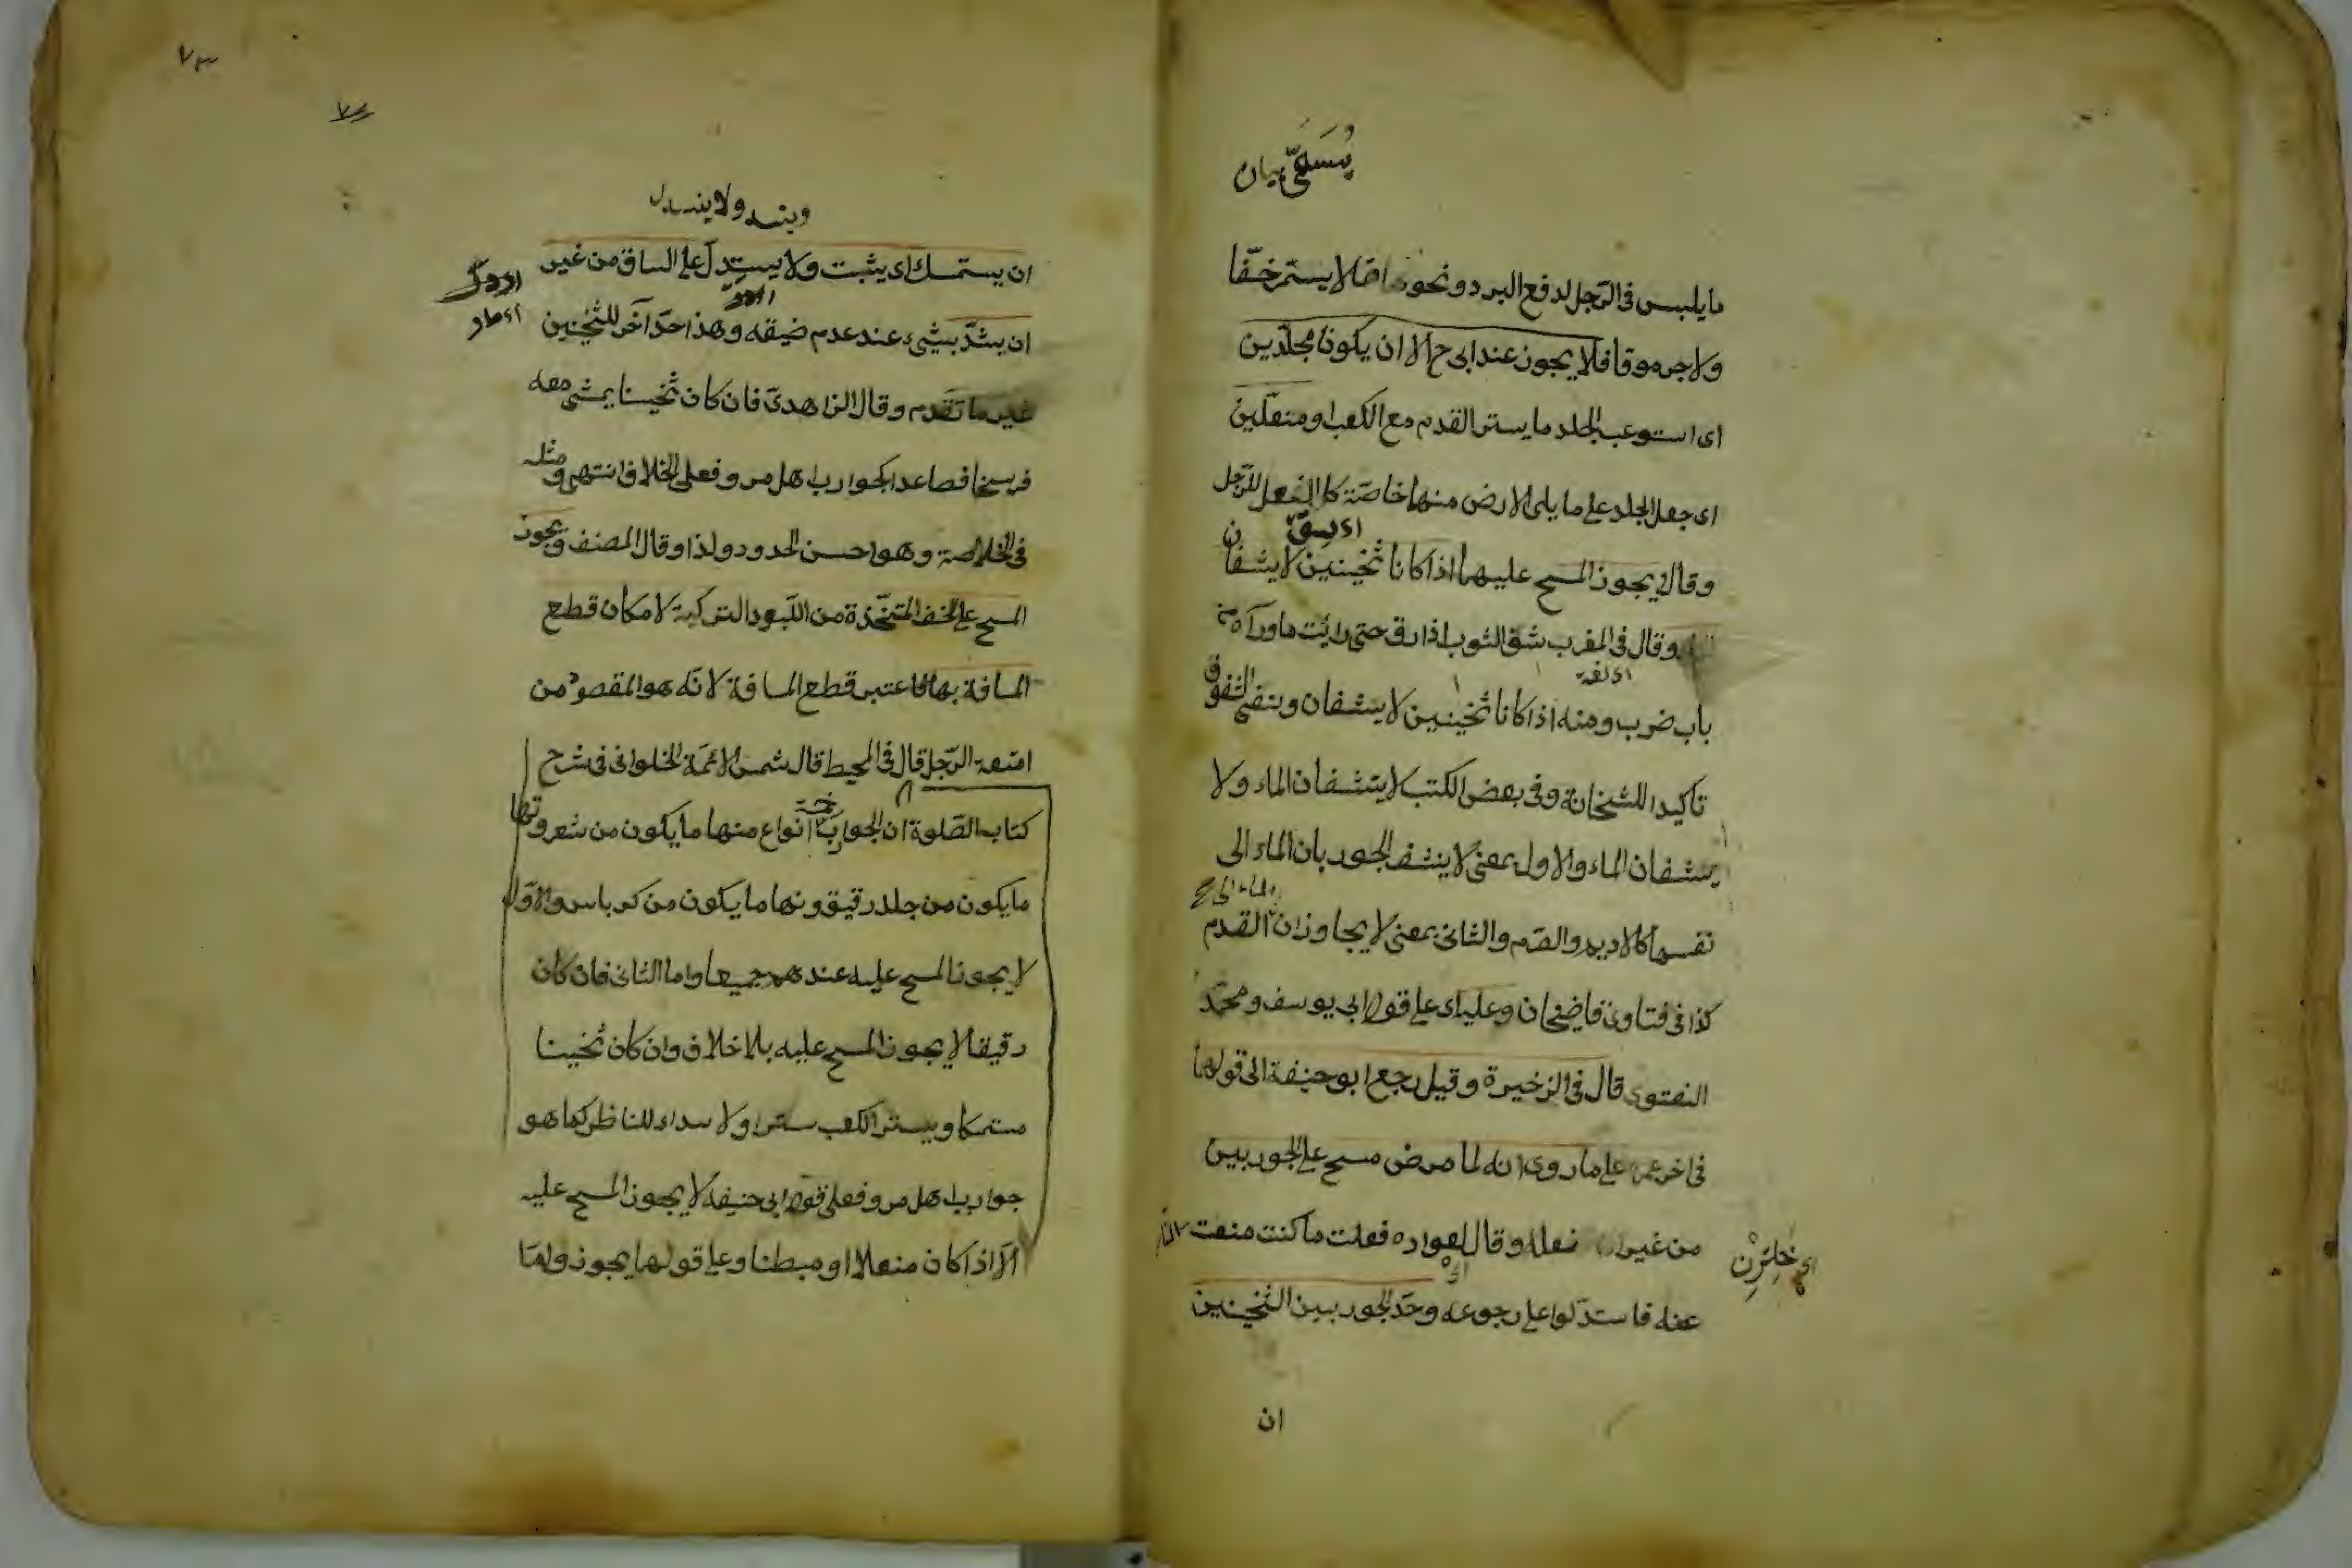 يُسَمَّى بيان
ما يلبس فى الرّجل لدفع البرد ونحوه مما لا يستمر خفّا
ولا جرموقا فلا يجوز عند ابى ح الا ان يكونا مجلّدين
اى استوعب الجلد ما يستر القدم مع الكعب او منعّلين
اى جعل الجلد على ما يلى الارض منها خاصّة كالنعل للرّجل
وقالا يجوز المسح عليهما اذا كانا ثخينين لا يشفان
وقال فى المغرب شف الثوب اذا رق حتى رايت ما ورآه من
باب ضرب ومنه اذا كانا ثخينين لا يشفان ونفى الشفوف
تاكيدا للثخانة وفى بعض الكتب لا ينشفان الماء ولا
ينشفان الماء والاول بمعنى لا ينشف الجوربان الماء الى
نفسهما كالاديم والصّرم والثانى بمعنى لا يجاوزان القدم
الماء الى
كذا فى فتاوى قاضيخان وعليه اى على قول ابى يوسف ومحمّد
الفتوى قال فى الزخيرة وقيل رجع ابو حنيفة الى قولهما
فى اخر عمره على ما روى انه لما مرض مسح على الجوربين
من غير نعل وقال لعواده فعلت ما كنت منعت النّاس
اى خَائِرِنْ
عنه فاستدلوا على رجوعه وحدّ الجوربين الثخينين
ان
٧٣
وبند ولا ينسدل
ان يستمسك اى يثبت ولا يستدل على الساق من غير
ان يشدّ بشىء عند عدم ضيقه وهذا حدّ آخر للثخينين
غير ما تقدم وقال الزاهدى فان كان ثخينا يمشى معه
فرسخا فصاعدا كجوارب اهل مرو فعلى الخلاف انتهى ومثله
فى الخلاصة وهو احسن الحدود ولذا وقال المصنف ويجوز
المسح على الخف المتّخذة من اللّبود التركية لامكان قطع
المسافة بها فاعتبر قطع المسافة لانّه هو المقصود من
امتعة الرّجل قال فى المحيط قال شمس الائمّة الحلوانى فى شرح
كتاب الصّلوة ان الجوارب انواع منها ما يكون من شعر ومنها
ما يكون من جلد رقيق ونها ما يكون من كرباس والاوّل
لا يجوز المسح عليه عندهم جميعا واما الثانى فان كان
رقيقا لا يجوز المسح عليه بلا خلاف وان كان ثخينا
مستمسكا ويستر الكعب سترا ولا سداء للناظر كما هو
جوارب اهل مرو فعلى قول ابى حنيفة لا يجوز المسح عليه
الّا اذا كان منعلا او مبطنا وعلى قولهما يجوز ولمّا